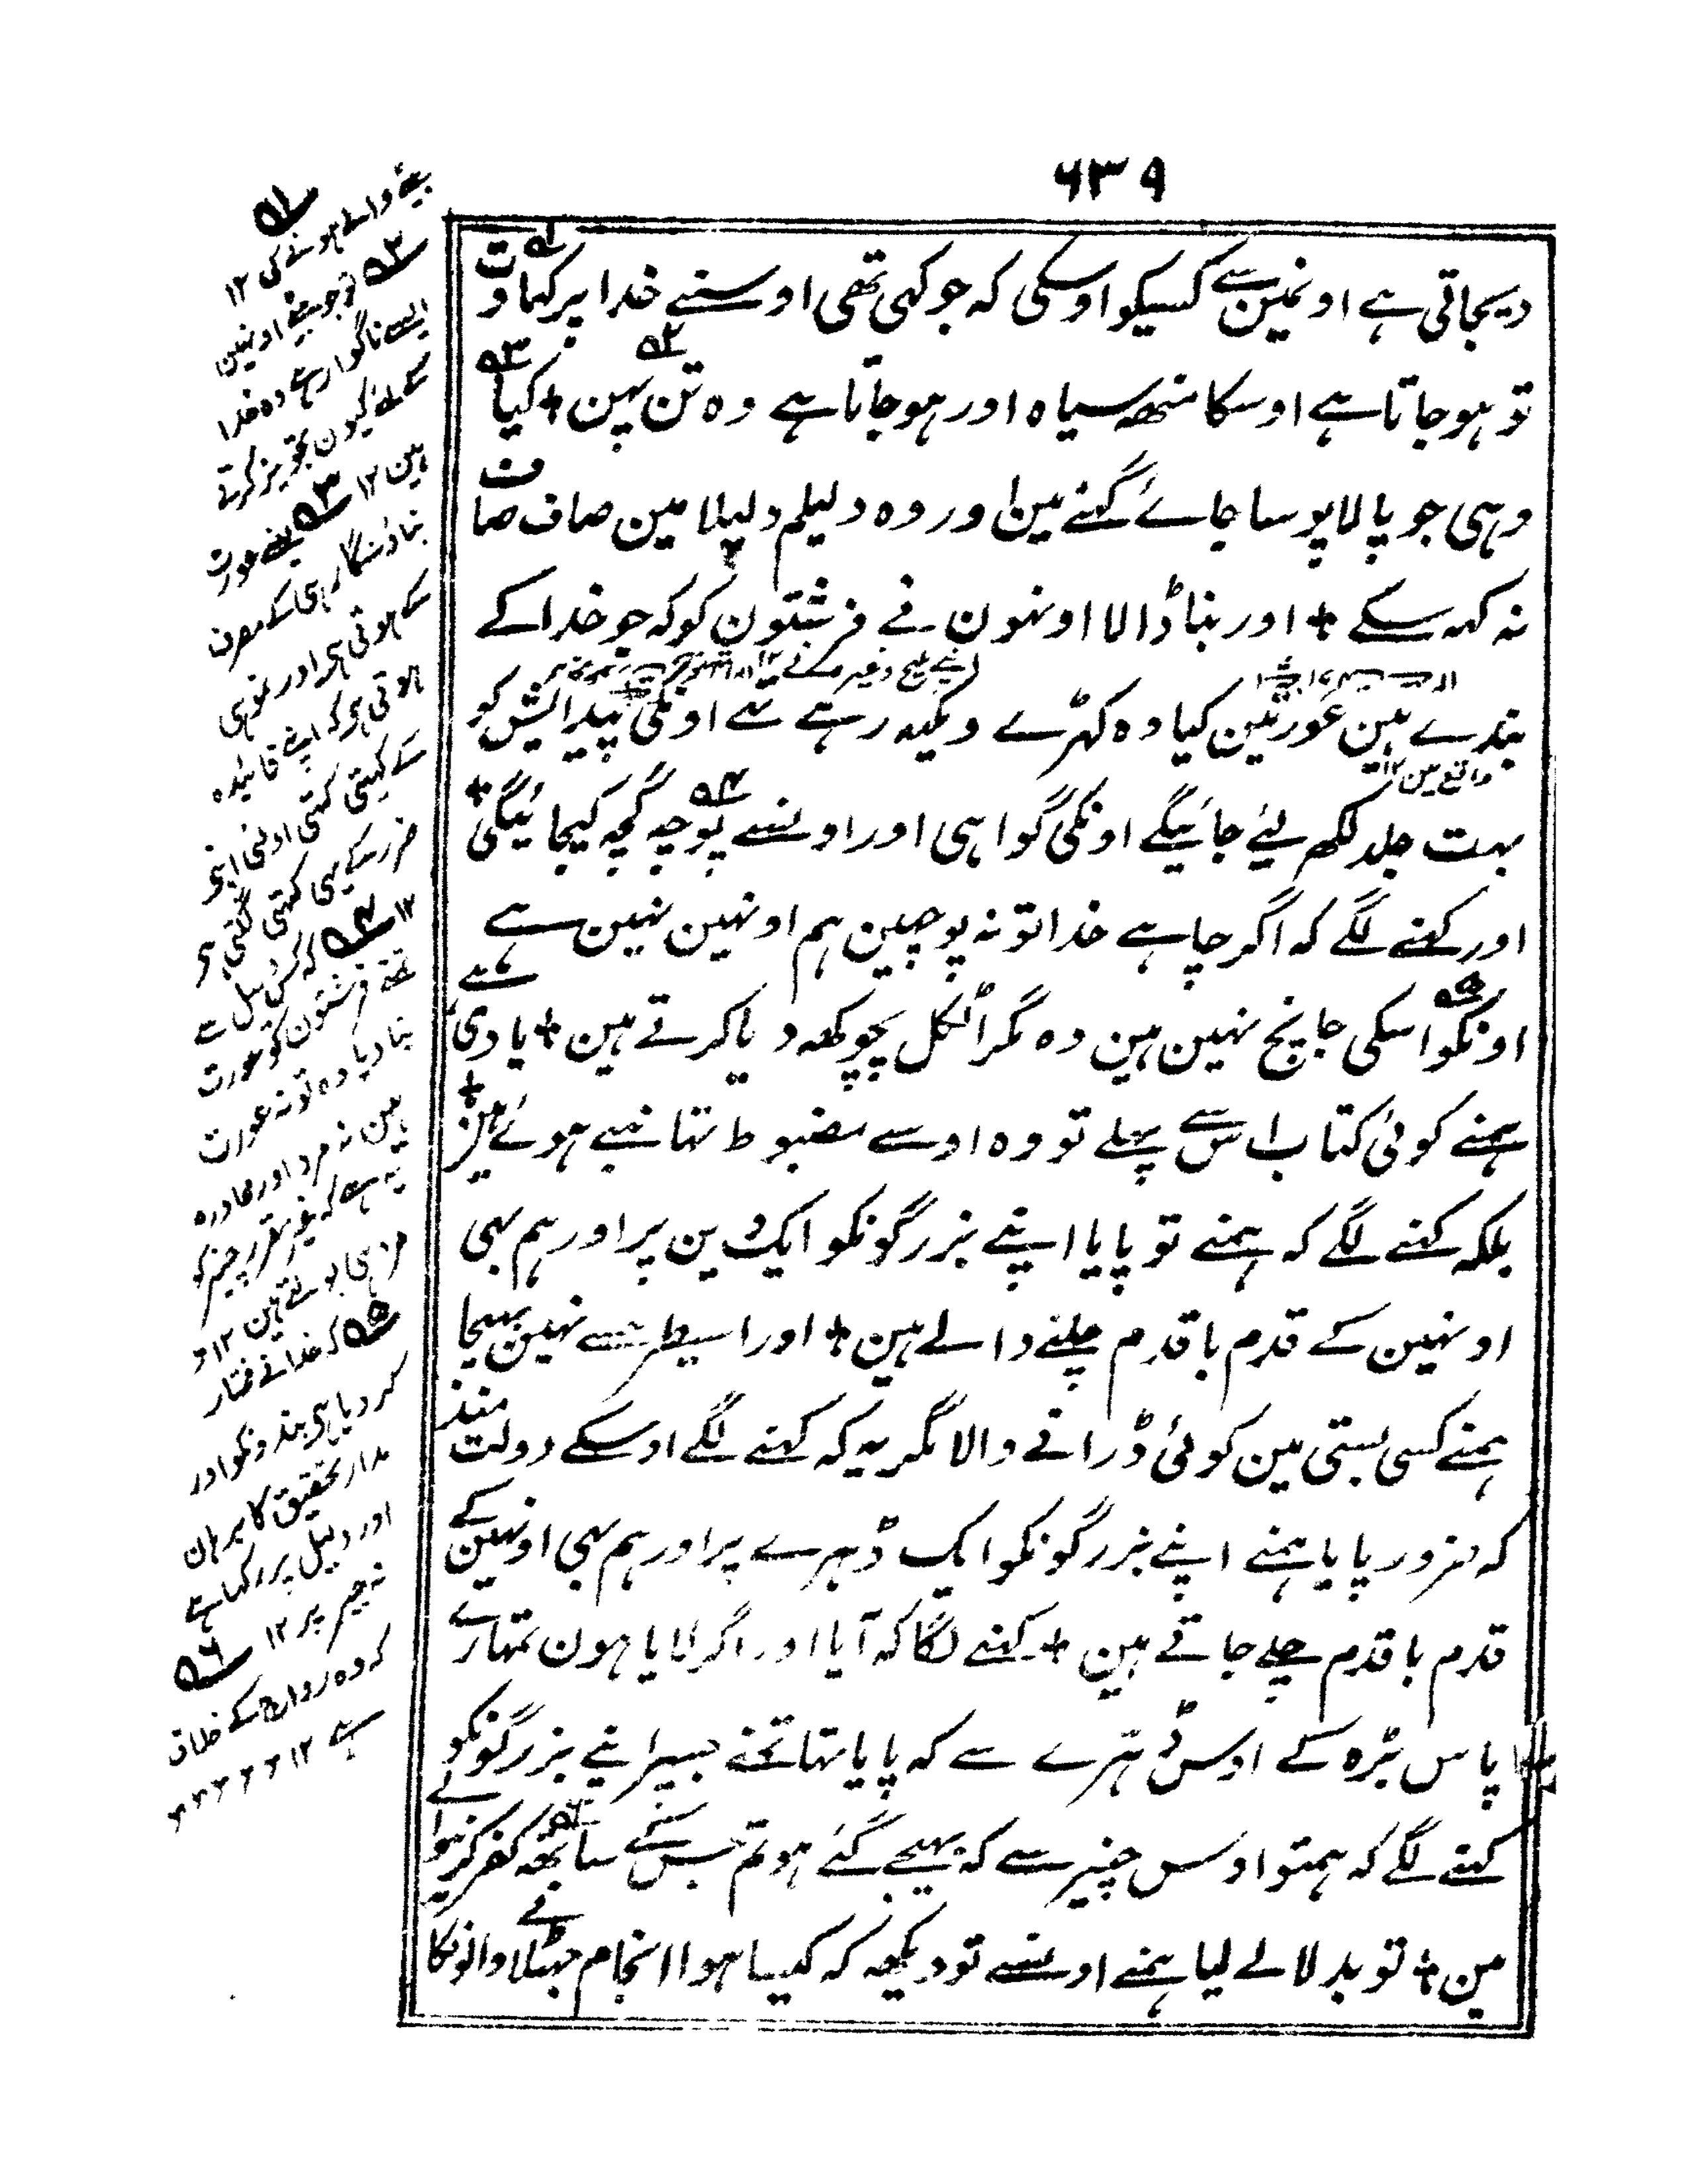 ۶۳۹
دیجاتی ہے اونمین سے کسیکو اوسکی کہ جو کہی تھی اوسنے خدا پر کہاوت
تو ہو جاتا ہے اوسکا منھ سیاہ اور ہو جاتا ہے وہ تن پہن + کیا
وہی جو پالا پوسا جائے گہنے مین اور وہ دلیلم دلیلا مین صاف صاف
نہ کہہ سکے + اور بنا ڈالا اونہون نے فرشتون کو کہ جو خدا کے
بندے ہین عورتین کیا وہ کہڑے دیکہہ رہے تھے اونکی پیدایش کو
واقع مین ۱۲
بہت جلد لکھ لیئے جائینگے اونکی گواہی اور اونسے پوچہ گچہ کیجائیگی +
اور کہنے لگے کہ اگر چاہے خدا تو نہ پوجین ہم اونہین نہین ہے
اونکو اسکی جانچ نہین ہین وہ مگر اٹکل پچو کہہ دیا کرتے ہین + یا دی ہے
ہمنے کوئی کتاب اس سے پہلے تو وہ اوسے مضبوط تہانبے ہوئے ہین +
بلکہ کہنے لگے کہ ہمنے تو پایا اپنے بزرگونکو ایک دین پر اور ہم بہی
اونہین کے قدم با قدم چلنے والے ہین + اور اسیطرح سے نہین بہیجا
ہمنے کسی بستی مین کوئی ڈرانے والا مگر یہ کہ کہنے لگے اوسکے دولت مند
کہ ضرور پایا ہمنے اپنے بزرگونکو ایک ڈہرے پر اور ہم بہی اونہین کے
قدم با قدم چلے جاتے ہین + کہنے لگا کہ آیا اور اگر لایا ہون تمہارے
پاس بڑہ کے اوس ڈہرے سے کہ پایا تہا تمنے جسپر اپنے بزرگونکو
کہنے لگے کہ ہمتو اوس چیز سے کہ بہیجے گئے ہو تم جس کے ساتھ کفر کرنیوالے
مین + تو بدلا لے لیا ہمنے اونسے تو دیکھہ کہ کیسا ہوا انجام جہٹلانے والونکا
بیٹے والے ہونے کی ۱۲
۵۲ تو جب بیٹے اونہین
ایسے ناگوار ہے وہ خدا
کے لئے کیون تجویز کرتے
ہین ۱۲ ۵۳ یعنے عورت
بناؤ سنگار ہی کے مصرف
کے ہوتی ہی اور نہ ہی
ہوتی ہی کہ اپنے فائیدہ
کے کہتی کہتی اولٹی اپنی
ضرر کے ہی کہتی لگتی ہی
۱۲ ۵۴ کہ کس دلیل سے
تمنے فرشتون کو عورت
بنا دیا وہ تو نہ عورت
ہین نہ مرد اور محاورہ
یہ ہے کہ غیر مقرر چیز کو
مذہبی بولتے ہین ۱۲
۵۵ کہ خدا نے مختار
کر دیا ہی بندونکو اور
مدار تحقیق کا برہان
اور دلیل پر رکہا ہے
نہ جبر پر ۱۲ ۵۶
کہ وہ رواج کے خلاف
ہے ۱۲